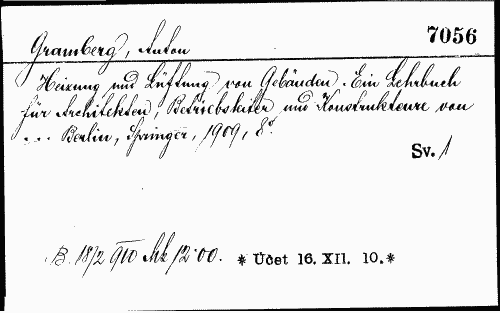 7056
Gramberg, Anton
Heizung und Lüftung von Gebäuden. Ein Lehrbuch
für Architekten, Betriebsleiter und Konstrukteure von
... Berlin, Springer, 1909, 8°.
Sv. 1
B. 1872 910 Mk 12·00. * Účet 16. XII. 10.*